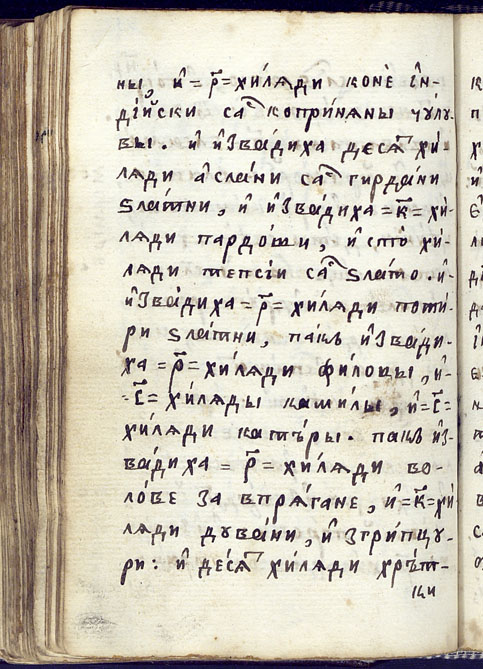 ны, и҆ = р҃ = хи́лѧди конѐ і҆н-
ді́йски са копри́нѧны чꙋ́лꙋ-
вы . и҆ и҆зва́диха десѧ хи́-
лѧди а҆сла́ни са гирда́ни
ѕла́тни , и҆ и҆зва́диха = к҃ = хи́-
лѧди пардо́ши , и҆ сто̀ хи́-
лѧди тепсі́и са ѕла́то . и҆-
и҆зва́диха = р҃ = хи́лѧди поти́-
ри ѕла́тни , пакъ и҆зва́ди-
ха = р҃ = хи́лѧди фи́ловы , и҆-
= с҃ = хи́лѧды ками́лы , и҆ = с҃ =
хи́лѧди катъ́ры . пакъ и҆з-
ва́диха = р҃ = хи́лѧди во-
ло́ве за впрѧ́гане , и҆ = к҃ = хи́
лѧди дꙋва́ни , и҆ згри́пцꙋ-
ри : и҆ десѧ́ хи́лѧди хръ́т-
ки